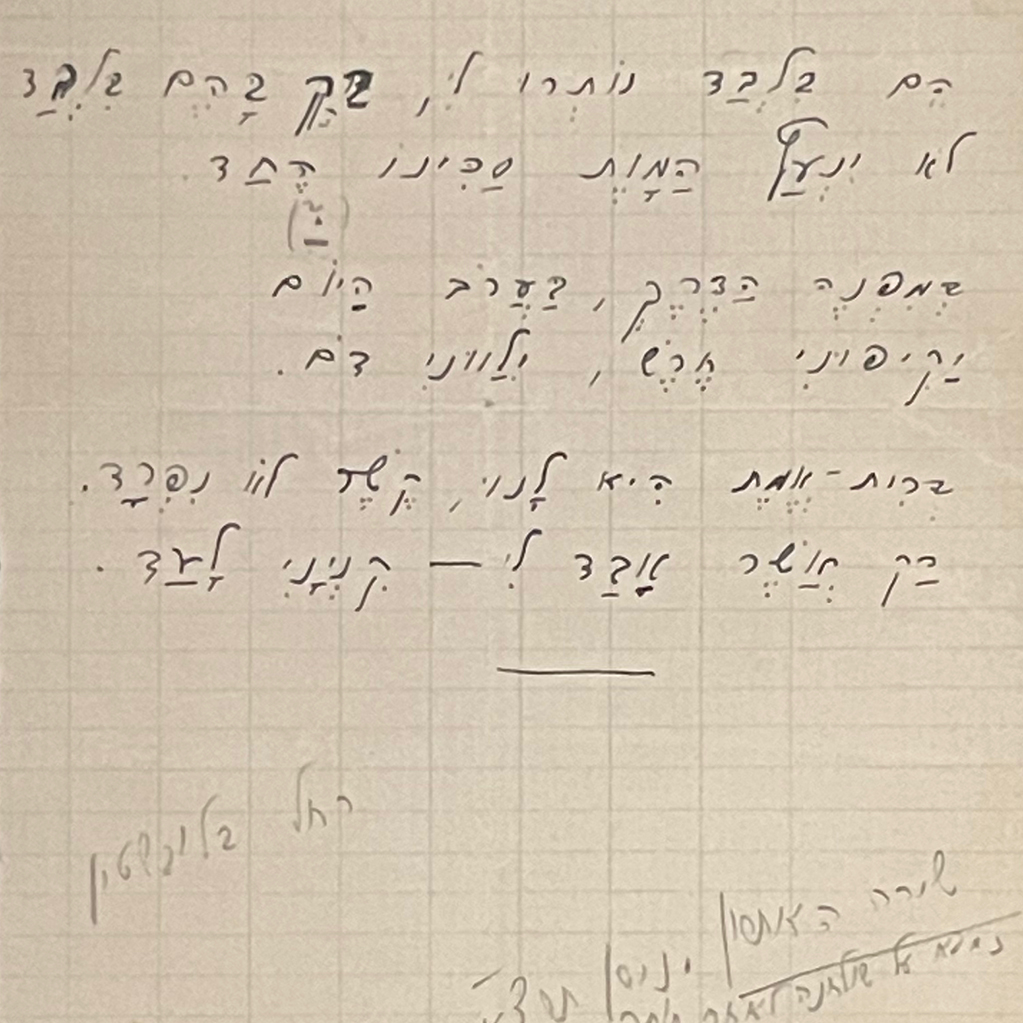 הֵם בִּלְבַד נוֹתְרוּ לִי, רַק בָּהֶם בִּלְבַד
לֹא יִנְעַץ הַמָּוֶת סַכִּינוֹ הֶחַד.
בְּמִפְנֵה הַדֶּרֶךְ, בַּעֲרֹב הַיּוֹם
יַקִּיפוּנִי חֶרֶשׁ, יְלַוּוּנִי דֹם.
בְּרִית-אֱמֶת הִיא לָנוּ, קֶשֶׁר לֹא נִפְרָד.
רַק אֲשֶׁר אָבַד לִי — קִנְיָנִי לָעַד.
רחל בלובשטין
שירה האחרון
נמצא על שולחנה לאחר
ניסן